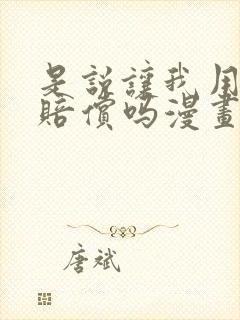 是說讓我用
賠償嗎漫畫
唐斌